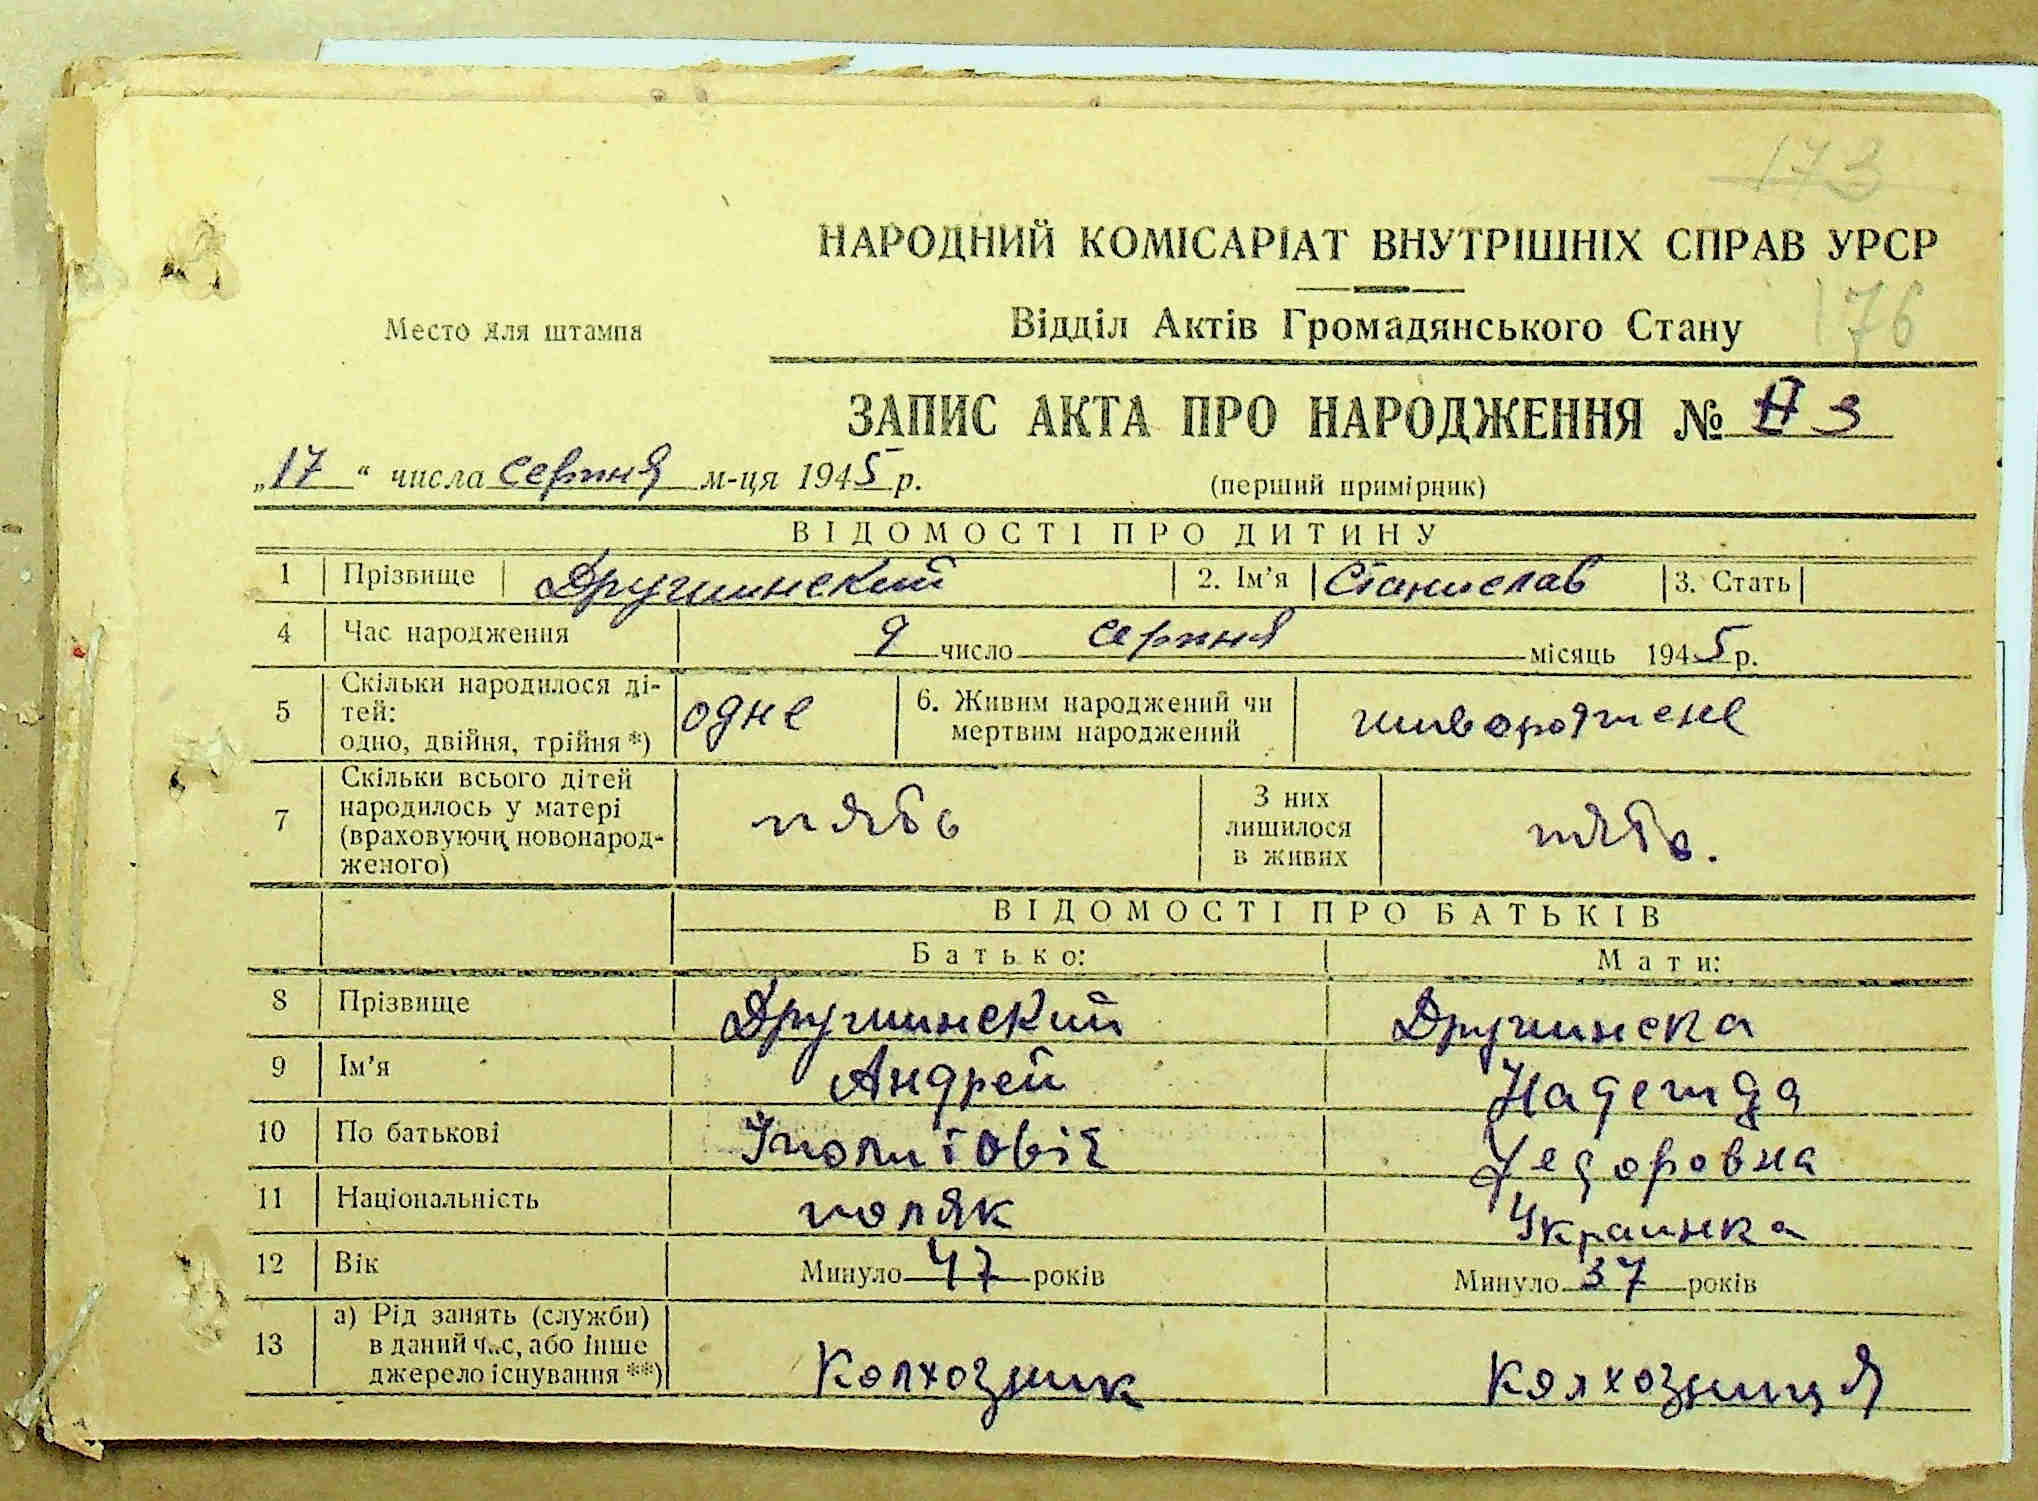 173
НАРОДНИЙ КОМІСАРІАТ ВНУТРІШНІХ СПРАВ УРСР
Место для штампа
Відділ Актів Громадянського Стану
176
ЗАПИС АКТА ПРО НАРОДЖЕННЯ № 3
„17“ числа серпня м-ця 1945 р.
(перший примірник)
ВІДОМОСТІ ПРО ДИТИНУ
1 Прізвище Дружинский 2. Ім'я Станислав 3. Стать
4 Час народження 9 число серпня місяць 1945 р.
5 Скільки народилося ді-
тей:
одно, двійня, трійня *) одне 6. Живим народжений чи
мертвим народжений живорожене
7 Скільки всього дітей
народилось у матері
(враховуючи новонарод-
женого) пять З них
лишилося
в живих пять.
ВІДОМОСТІ ПРО БАТЬКІВ
Батько: Мати:
8 Прізвище Дружинский Дружинска
9 Ім'я Андрей Надежда
10 По батькові Іполитовіч Федоровна
11 Національність поляк Украинка
12 Вік Минуло 47 років Минуло 37 років
13 а) Рід занять (служби)
в даний час, або інше
джерело існування **) Колхозник Колхозниця